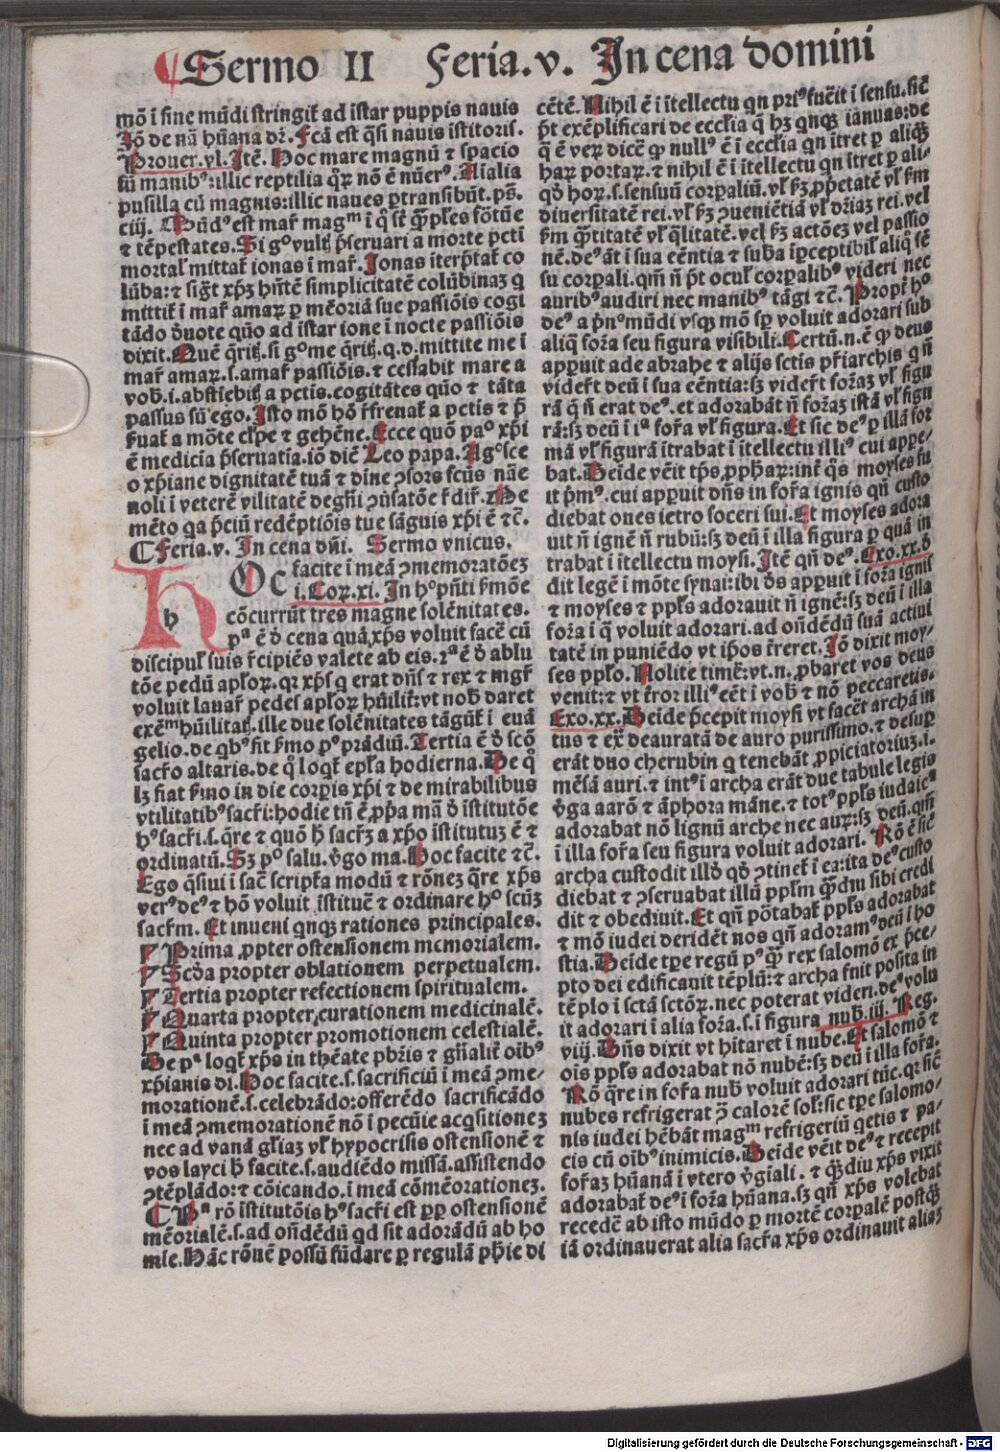 Sermo II Feria.v. In cena domini
mō i fine mūdi stringit̄ ad istar puppis nauis
Iō de nā hūana dr̄. Fcā est q̄si nauis istitoris.
Prouer.vl. Itē. Hoc mare magnū ⁊ spacio
sū manibꝰ: illic reptilia qꝝ nō ē nūerꝰ. Aīalia
pusilla cū magnis: illic naues ptransibūt. ps̄.
ciij. Mūdꝰ est mar̄ magᵐ i q̄ sūt
⁊ tēpestates. Si gͦ vultꝭ p̄seruari a morte pctī
mortał mittat̄ ionas i mar̄. Jonas iterp̄tat̄ co
lūba: ⁊ sigt̄ xp̄ꝫ hn̄tē simplicitatē colūbinaꝫ q
mittit̄ i mar̄ amaꝝ p mēoriā sue passiōis cogi
tādo d̄uote quō ad istar ione i nocte passiōis
dixit. Quē q̄ritꝭ. si gͦ me q̄ritꝭ. q.d. mittite me i
mar̄ amaꝝ. s. amar̄ passiōis. ⁊ cessabit mare a
vob̄. i. abstiebitꝭ a pctis. cogitātes quō ⁊ tāta
passus sū ego. Isto mō hō r̄frenat̄ a pctis ⁊ p̄
ſuat̄ a mōte clpe ⁊ gehēne. Ecce quō paᵒ xp̄i
ē medicia p̄seruatia. iō dic̄ Leo papa. Agͦsce
o xp̄iane dignitatē tuā ⁊ dīne ꝯsors fcūs nāe
noli i veterē vilitatē deghn̄i ꝯūsatōe r̄dir̄. Me
mēto qa p̄ciū redēptiōis tue sāguis xp̄i ē ⁊c̄.
Feria.v. In cena dn̄i. Sermo vnicus.
HOc facite i meā ꝯmemoratōeꝫ
i.Coꝝ.xi. In hͦ pn̄ti ẜmōe
cōcurrūt tres magne solēnitates.
pᵃ ē d̄ cena quā xp̄s voluit facē cū
discipuł suis r̄cipiēs valete ab eis. 2ᵃ ē d̄ ablu
tōe pedū apłoꝝ. qꝛ xp̄s q erat dn̄s ⁊ rex ⁊ mgr̄
voluit lauar̄ pedes apłoꝝ hūilit̄: vt nob̄ daret
exēᵐ hūilitatꝭ. ille due solēnitates tāgūt̄ i euā
gelio. de qbꝰ fit ẜmo pͦ prādiū. Tertia ē d̄ scō
sacr̄o altaris. de q̊ loqt̄ epła hodierna. De q̊
lꝫ fiat ẜmo in die corpis xp̄i ⁊ de mirabilibus
vtilitatibꝰ sacr̄i: hodie tn̄ ē ꝓpa mā d̄ istitutōe
hꝰ sacr̄i. s. q̄re ⁊ quō h̄ sacr̄ꝫ a xp̄o istitutuꝫ ē ⁊
ordinatū. Sꝫ pͦ salu. v̄go ma. Hoc facite ⁊c̄.
Ego q̄siui i sac̄ scriptr̄a modū ⁊ rōneꝫ q̄re xp̄s
verꝰ deꝰ ⁊ hō voluit istituē ⁊ ordinare hͦ scūꝫ
sacr̄m. Et inueni qnqꝫ rationes principales.
Prima ꝓpter ostensionem memorialem.
Scd̄a propter oblationem perpetualem.
Tertia propter refectionem spiritualem.
Quarta propter curationem medicinalē.
Quinta propter promotionem celestialē.
De pᵃ loqt̄ xp̄s in theāte pbr̄is ⁊ gn̄alit̄ oībꝰ
xp̄ianis dī. Hoc facite. s. sacrificiū i meā ꝯme
morationē. s. celebrādo: offerēdo sacrificādo
i meā ꝯmemorationē nō i pecuīe acqsitioneꝫ
nec ad vanā gl̄iaꝫ vł hypocrisis ostensionē ⁊
vos layci h̄ facite. s. audiēdo missā. assistendo
ꝯtēplādo: ⁊ cōicando. i meā cōmēorationeꝫ.
Pᵃ rō istitutōis hꝰ sacr̄i est ꝓp ostensionē
mēorialē. s. ad on̄dēdū qd sit adorādū ab ho
mīe. Hāc rōnē possū fūdare p regulā ph̄ie di
cētē. Nihil ē i itellectu qn priꝰ fuēit i sensu. sic̄
p̄t exēplificari de ecclīa q̄ hꝫ qnqꝫ ianuas: de
q̄ ē veꝝ dicē ꝙ nullꝰ ē i ecclīa qn itret p aliq̄ꝫ
haꝝ portaꝝ. ⁊ nihil ē i itellectu qn itret p ali
qd̄ hoꝝ. s. sensuū corpaliū. vł ẜꝫ ꝓp̄etatē vł ẜm
diuersitatē rei. vł ẜꝫ ꝯueniētiā vł dr̄iaꝫ rei. vel
ẜm q̄titatē vł q̄litatē. vel ẜꝫ actōeꝫ vel passio
nē. deꝰ āt i sua eēntia ⁊ suba ip̄ceptibił aliq̄ sē
su corpali. qm̄ n̄ p̄t ocuł corpalibꝰ videri nec
auribꝰ audiri nec manibꝰ tāgi ⁊c̄. Propt̄ hͦ
deꝰ a pⁿͦ mūdi vsqꝫ mō sp̄ voluit adorari sub
aliq̄ foꝛa seu figura visibili. Certū. n. ē ꝙ deus
appuit ade abrahe ⁊ alijs sctis p̄riarchis q n̄
videt̄ deū i sua eēntia: sꝫ videt̄ foꝛaꝫ vł figu
rā q̄ n̄ erat deꝰ. et adorabāt n̄ foꝛaꝫ istā vł figu
rā: sꝫ deū i iᵃ for̄a vł figura. Et sic deꝰ p illā for
mā vł figurā itrabat i itellectū illiꝰ cui appe
bat. Deīde vēit tp̄s ꝓphaꝝ: int̄ q̄s moyses fu
it p̄mꝰ. cui appuit dn̄s in for̄a ignis qn̄ custo
diebat oues ietro soceri sui. Et moyses adora
uit n̄ ignē n̄ rubū: sꝫ deū i illa figura p quā in
trabat i itellectu moysi. Itē qn̄ deꝰ. Exo.xx.d̄
dit legē i mōte synai: ibi d̄s appuit i foꝛa ignis
⁊ moyses ⁊ ppłs adorauit n̄ ignē: sꝫ deū i illa
foꝛa i q̄ voluit adorari. ad on̄dēdū suā actiui
tatē in puniēdo vt ip̄os t̄reret. Iō dixit moy
ses ppło. Nolite timē: vt. n. ꝓbaret vos deus
venit: ⁊ vt t̄ror illiꝰ eēt i vob̄ ⁊ nō peccaretis.
Exo.xx. Deīde p̄cepit moysi vt facēt archā in
tus ⁊ ex̄ deauratā de auro purissimo. ⁊ desup
erāt duo cherubin q tenebāt ꝓpiciatoriuꝫ. i.
mēsā auri. ⁊ intꝰ i archa erāt due tabule legis
v̄ga aarō ⁊ āphora māne. ⁊ totꝰ ppłs iudaicꝰ
adorabat nō lignū arche nec auꝝ: sꝫ deū. qm̄
i illa for̄a seu figura voluit adorari. Rō ē sic̄
archa custodit illd̄ qd̄ ꝯtinet̄ i ea: ita deꝰ custo
diebat ⁊ ꝯseruabat illū ppłm q̄diu sibi credi
dit ⁊ obediuit. Et qn̄ pōtabat̄ ppłs adorabat
⁊ mō iudei deridēt nos qn̄ adoramꝰ deū i ho
stia. Deīde tpe regū pꝰ q̄ rex salomō ex p̄ce
pto dei edificauit tēplū: ⁊ archa fuit posita in
tēplo i sctā sctōꝝ. nec poterat videri. deꝰ volu
it adorari i alia foꝛa. s. i figura nub̄. iij. Reg.
viij. Dn̄s dixit vt hitaret i nube. Et salomō ⁊
oīs ppłs adorabāt nō nubē: sꝫ deū i illa for̄a.
Rō q̄re in for̄a nub̄ voluit adorari tūc. qꝛ sic̄
nubes refrigerat ꝯ̄ calorē soł: sic tpe salomo
nis iudei hēbāt magᵐ refrigeriū qetis ⁊ pa
cis cū oībꝰ inimicis. Deīde vēit deꝰ ⁊ recepit
for̄aꝫ hūanā i vtero v̄giali. ⁊ q̄diu xp̄s vixit
adorabat̄ deꝰ i foꝛa hūana. sꝫ qn̄ xp̄s volebat
recedē ab isto mūdo p mortē corpalē postq̄ꝫ
iā ordinauerat alia sacr̄a xp̄s ordinauit aliaꝫ
Digitalisierung gefördert durch die Deutsche Forschungsgemeinschaft - DFG